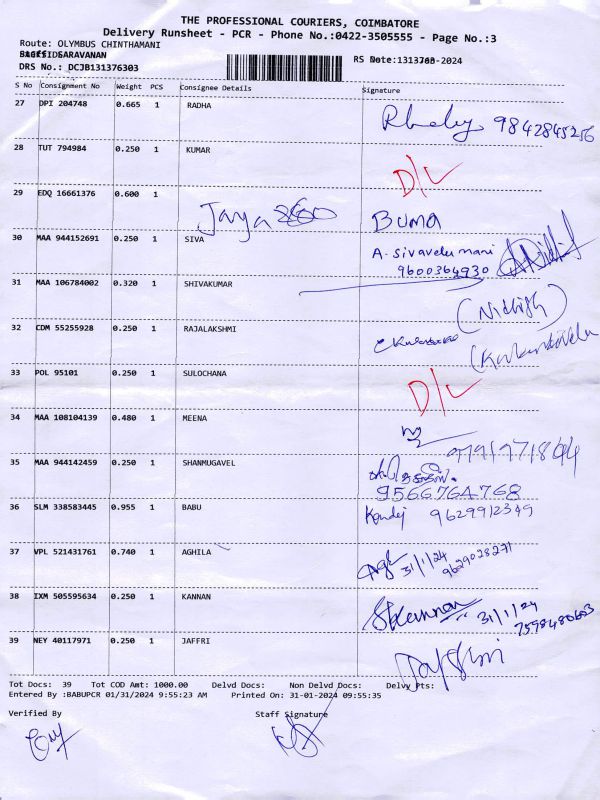 THE PROFESSIONAL COURIERS, COIMBATORE
Delivery Runsheet - PCR - Phone No.:0422-3505555 - Page No.:3
Route: OLYMBUS CHINTHAMANI
SARAVANAN
DRS No.: DCJB131376303
S No Consignment No Weight PCS Consignee Details Signature
27 DPI 204748 0.665 1 RADHA 9842845256
28 TUT 794984 0.250 1 KUMAR D/L
29 EDQ 16661376 0.600 1 Jaya BUMA
30 MAA 944152691 0.250 1 SIVA A. Sivavelumani
9600364930
31 MAA 106784002 0.320 1 SHIVAKUMAR (Nithish)
32 CDM 55255928 0.250 1 RAJALAKSHMI
33 POL 95101 0.250 1 SULOCHANA D/L
34 MAA 108104139 0.480 1 MEENA
35 MAA 944142459 0.250 1 SHANMUGAVEL
9566764768
36 SLM 338583445 0.955 1 BABU 9629912349
37 VPL 521431761 0.740 1 AGHILA 31/1/24
9629028271
38 IXM 505595634 0.250 1 KANNAN 31/1/24
39 NEY 40117971 0.250 1 JAFFRI
Tot Docs: 39 Tot COD Amt: 1000.00 Delvd Docs: Non Delvd Docs: Delvy Pts:
Entered By :BABUPCR 01/31/2024 9:55:23 AM Printed On: 31-01-2024 09:55:35
Verified By Staff Signature